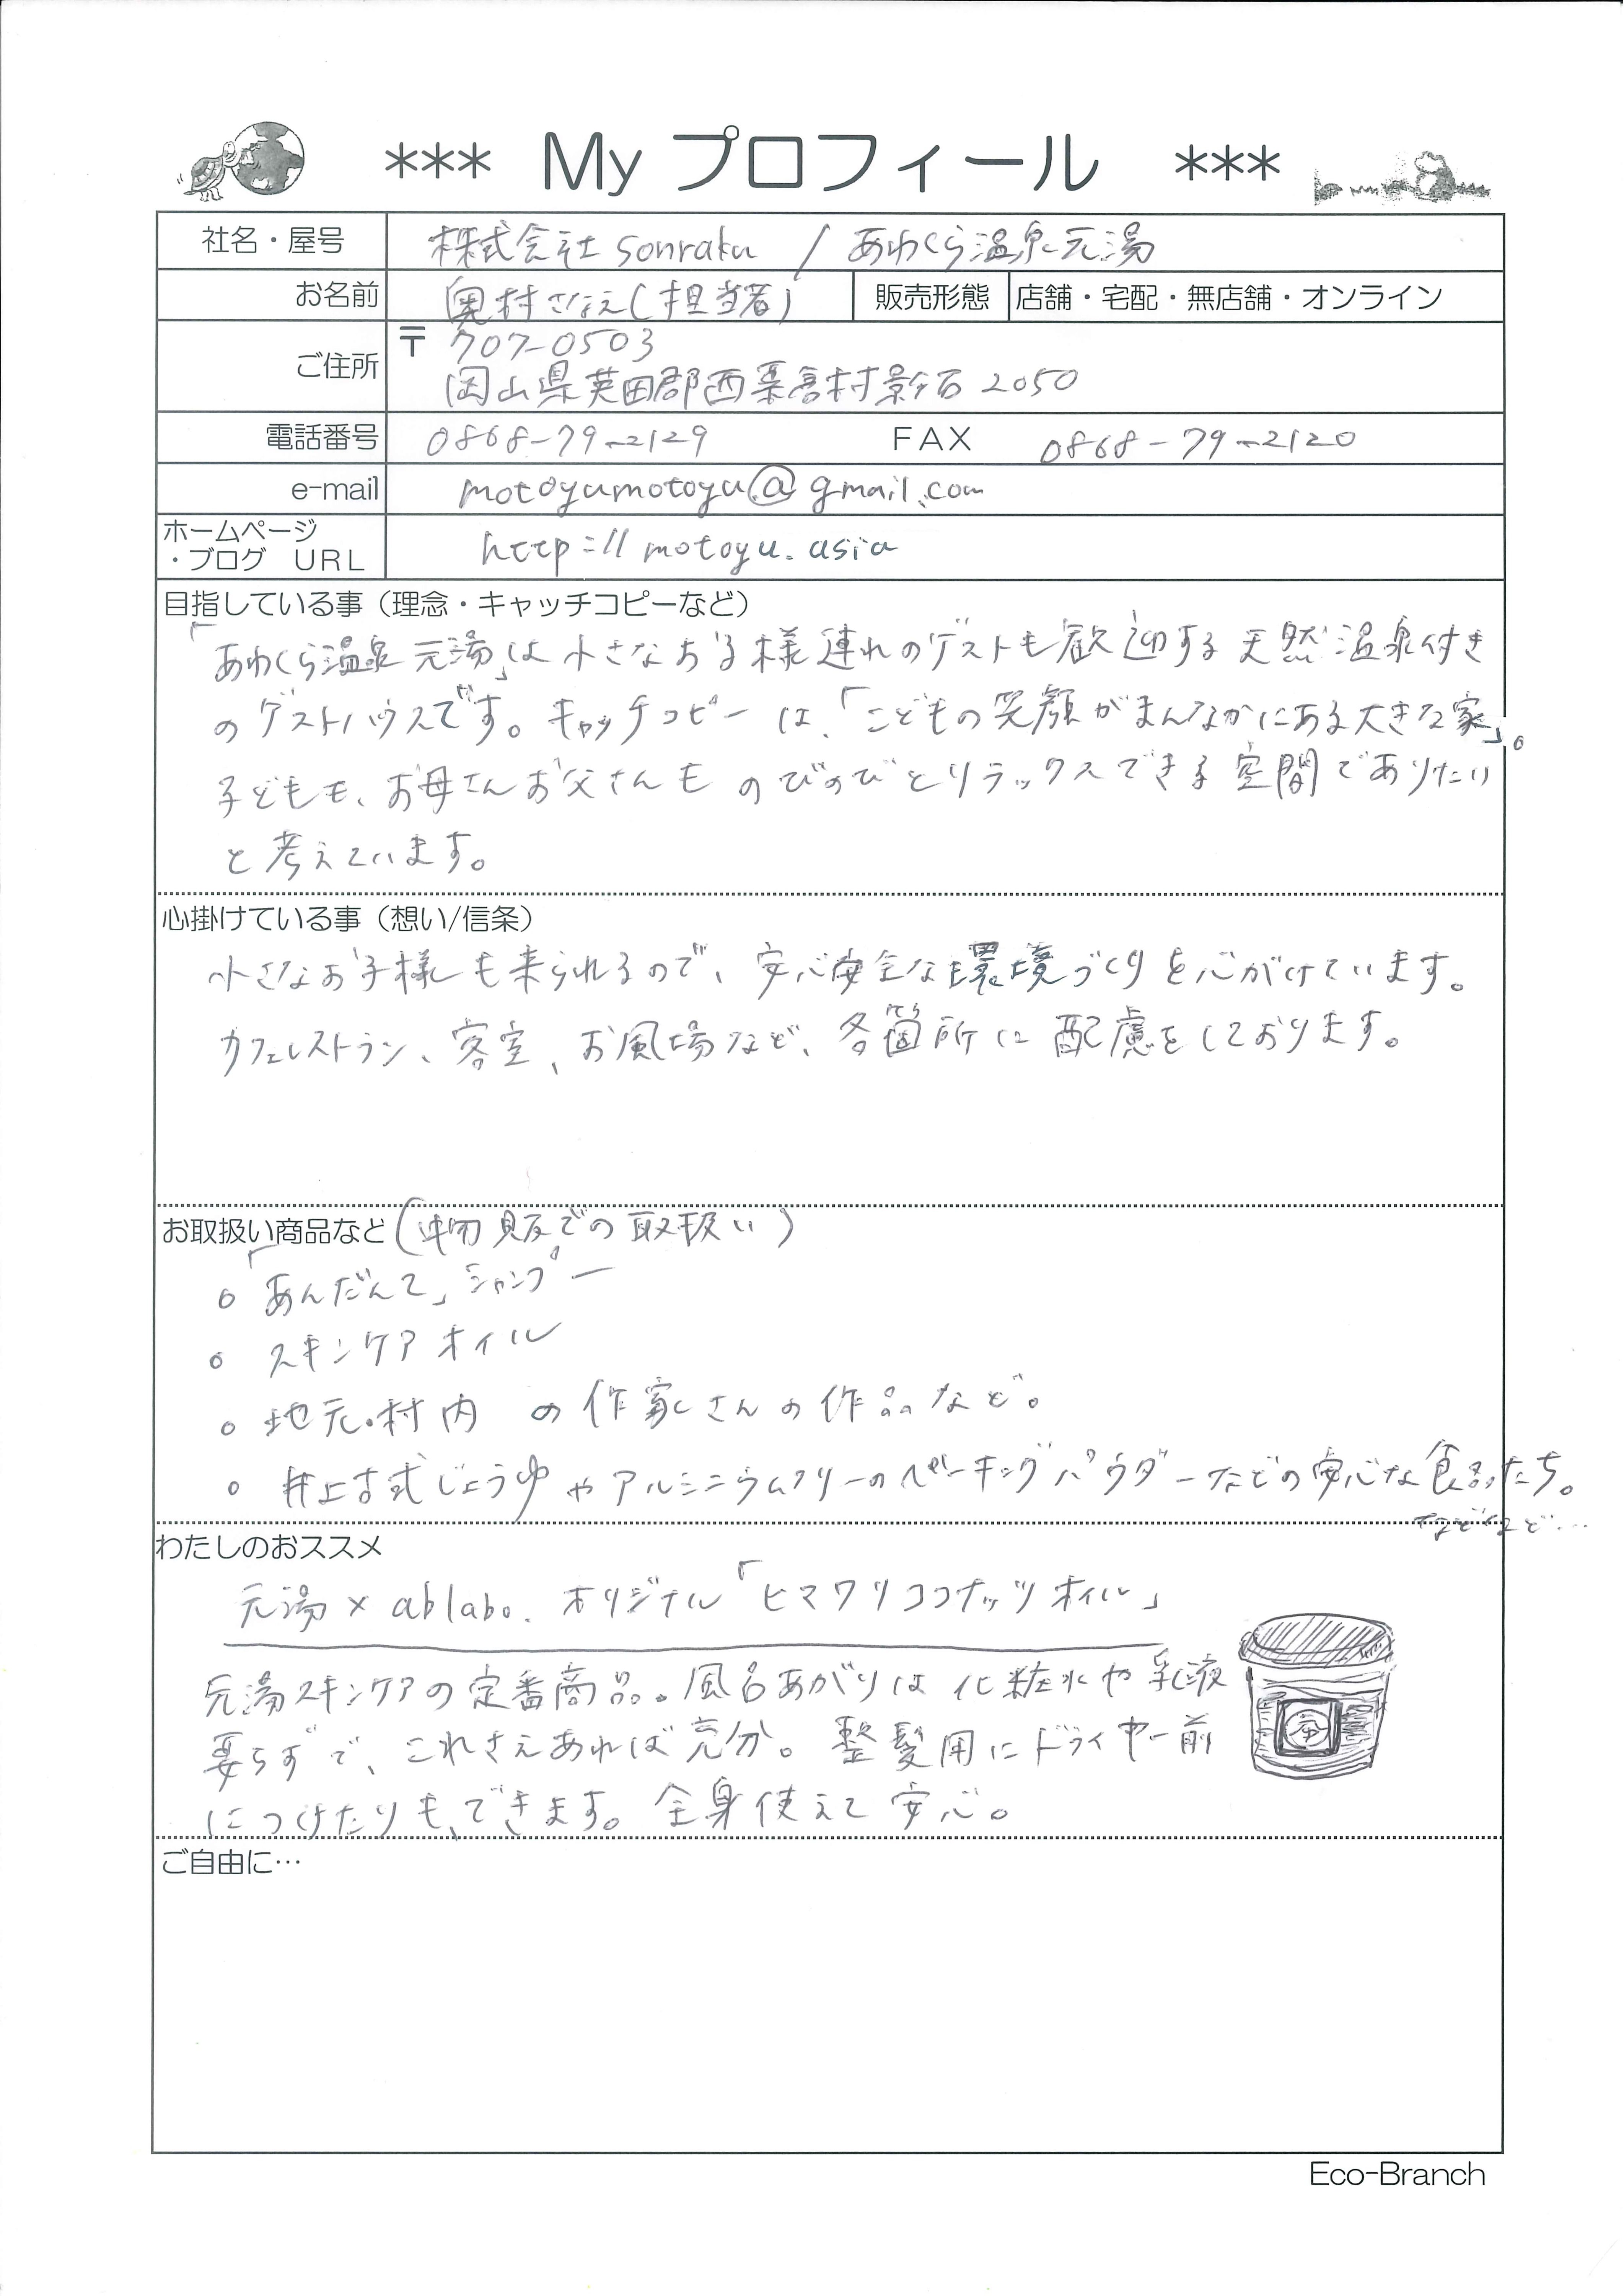 *** My プロフィール ***
社名・屋号 株式会社 sonraku / あわくら温泉元湯
お名前 奥村さなえ(担当者) 販売形態 店舗・宅配・無店舗・オンライン
ご住所 〒 707-0503
岡山県英田郡西粟倉村影石 2050
電話番号 0868-79-2129 FAX 0868-79-2120
e-mail motoyumotoyu@gmail.com
ホームページ
・ブログ URL http://motoyu.asia
目指している事（理念・キャッチコピーなど）
「あわくら温泉 元湯」は 小さなお子様連れのゲストも歓迎する 天然温泉付き
のゲストハウスです。キャッチコピーは、「こどもの笑顔がまんなかにある大きな家」。
子どもも、お母さんお父さんも のびのびとリラックスできる空間でありたい
と考えています。
心掛けている事（想い/信条）
小さなお子様も来られるので、安心安全な環境づくりを心がけています。
カフェレストラン、客室、お風呂場など、各箇所に配慮をしております。
お取扱い商品など(物販での取扱い)
○「あんだんて」シャンプー
○ スキンケアオイル
○ 地元・村内 の作家さんの作品など。
○ 井上古式じょうゆやアルミニウムフリーのベーキングパウダーなどの安心な食品たち。
などなど…
わたしのおススメ
元湯×ablabo. オリジナル「ヒマワリココナッツオイル」
元湯スキンケアの定番商品。風呂あがりは 化粧水や乳液
要らずで、これさえあれば充分。整髪用にドライヤー前
につけたりも、できます。全身使えて安心。
ご自由に…
Eco-Branch